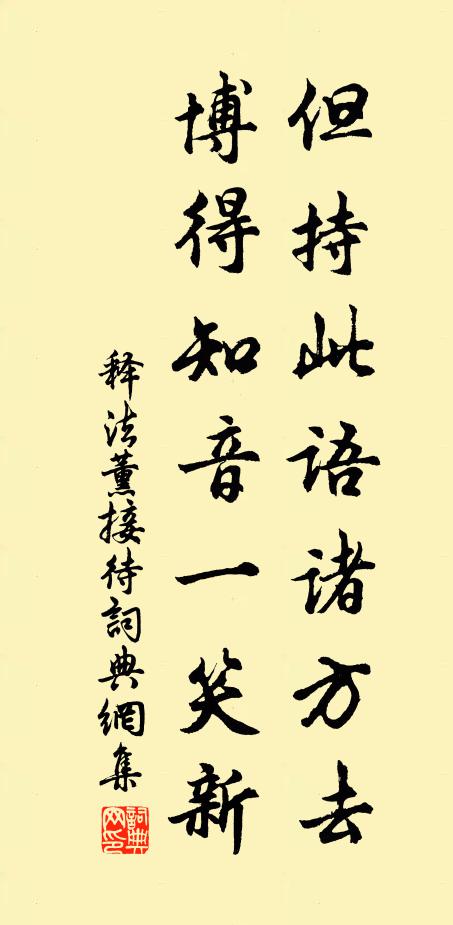 但持此语诸方去
博得知音一笑新
释法薰接待詞典網集
詞典网印